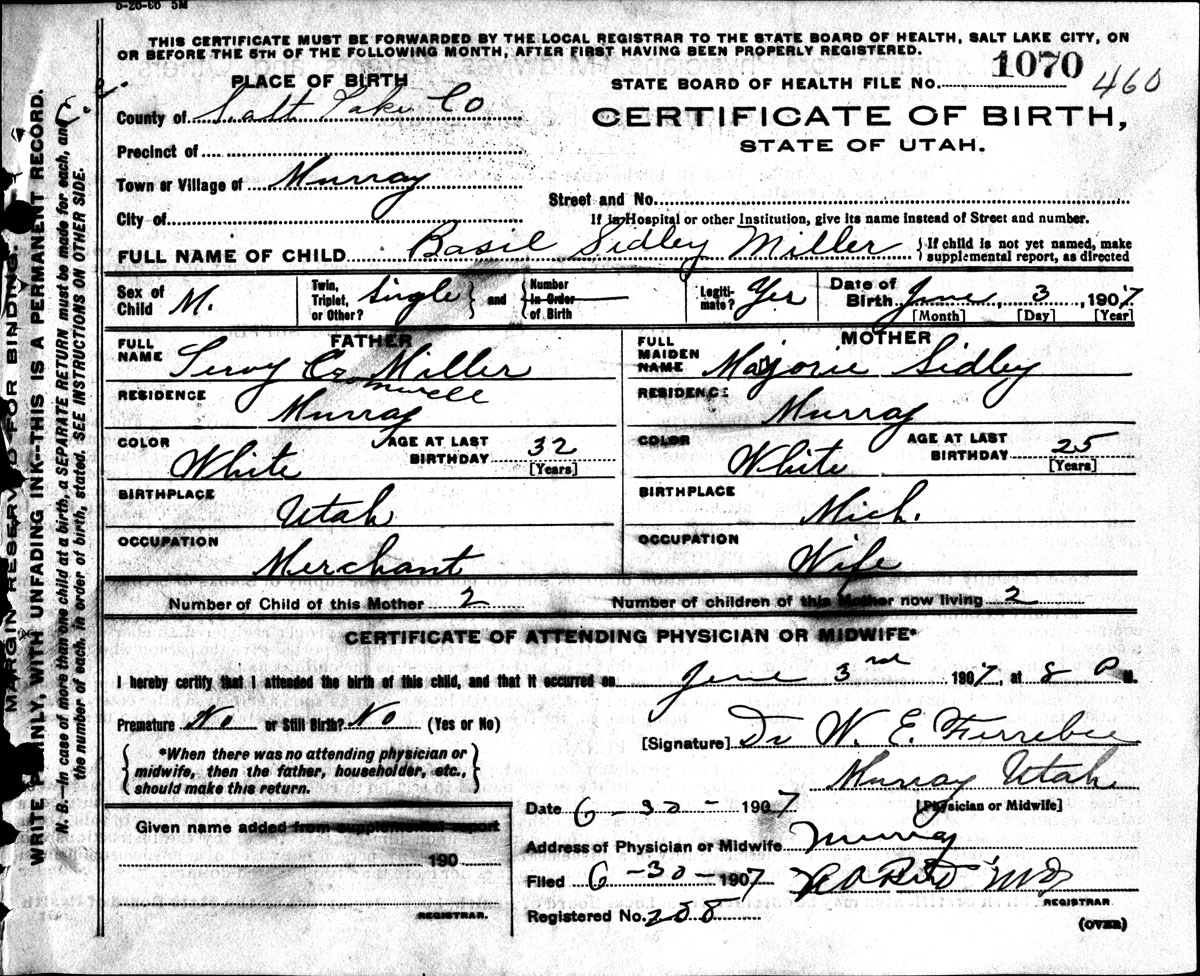 5-26-06 5M
THIS CERTIFICATE MUST BE FORWARDED BY THE LOCAL REGISTRAR TO THE STATE BOARD OF HEALTH, SALT LAKE CITY, ON
OR BEFORE THE 5TH OF THE FOLLOWING MONTH, AFTER FIRST HAVING BEEN PROPERLY REGISTERED.
PLACE OF BIRTH
STATE BOARD OF HEALTH FILE NO. 1070 460
County of Salt Lake Co
CERTIFICATE OF BIRTH,
STATE OF UTAH.
Precinct of
Town or Village of Murray
Street and No.
City of
If in Hospital or other Institution, give its name instead of Street and number.
FULL NAME OF CHILD Basil Sidley Miller
If child is not yet named, make
supplemental report, as directed
Sex of Child M.
Twin, Triplet, or Other? Single and Number in Order of Birth
Legiti-mate? Yes
Date of Birth June 3, 1907
[Month] [Day] [Year]
FATHER
FULL NAME Leroy Cromwell Miller
RESIDENCE Murray
COLOR White AGE AT LAST BIRTHDAY 32 [Years]
BIRTHPLACE Utah
OCCUPATION Merchant
MOTHER
FULL MAIDEN NAME Marjorie Sidley
RESIDENCE Murray
COLOR White AGE AT LAST BIRTHDAY 25 [Years]
BIRTHPLACE Mich.
OCCUPATION Wife
Number of Child of this Mother 2 Number of children of this Mother now living 2
CERTIFICATE OF ATTENDING PHYSICIAN OR MIDWIFE*
I hereby certify that I attended the birth of this child, and that it occurred on June 3rd 1907, at 8 P M.
Premature No or Still Birth? No (Yes or No)
[Signature] Dr W. E. Ferrebee
*When there was no attending physician or
midwife, then the father, householder, etc.,
should make this return.
Murray Utah
[Physician or Midwife]
Date 6-30-1907
Given name added from supplemental report
190
REGISTRAR.
Address of Physician or Midwife Murray
Filed 6-30-1907 M D
REGISTRAR
Registered No. 258
(OVER)
MARGIN RESERVED FOR BINDING.
WRITE PLAINLY, WITH UNFADING INK--THIS IS A PERMANENT RECORD.
N. B.—In case of more than one child at a birth, a SEPARATE RETURN must be made for each, and
the number of each, in order of birth, stated. SEE INSTRUCTIONS ON OTHER SIDE.